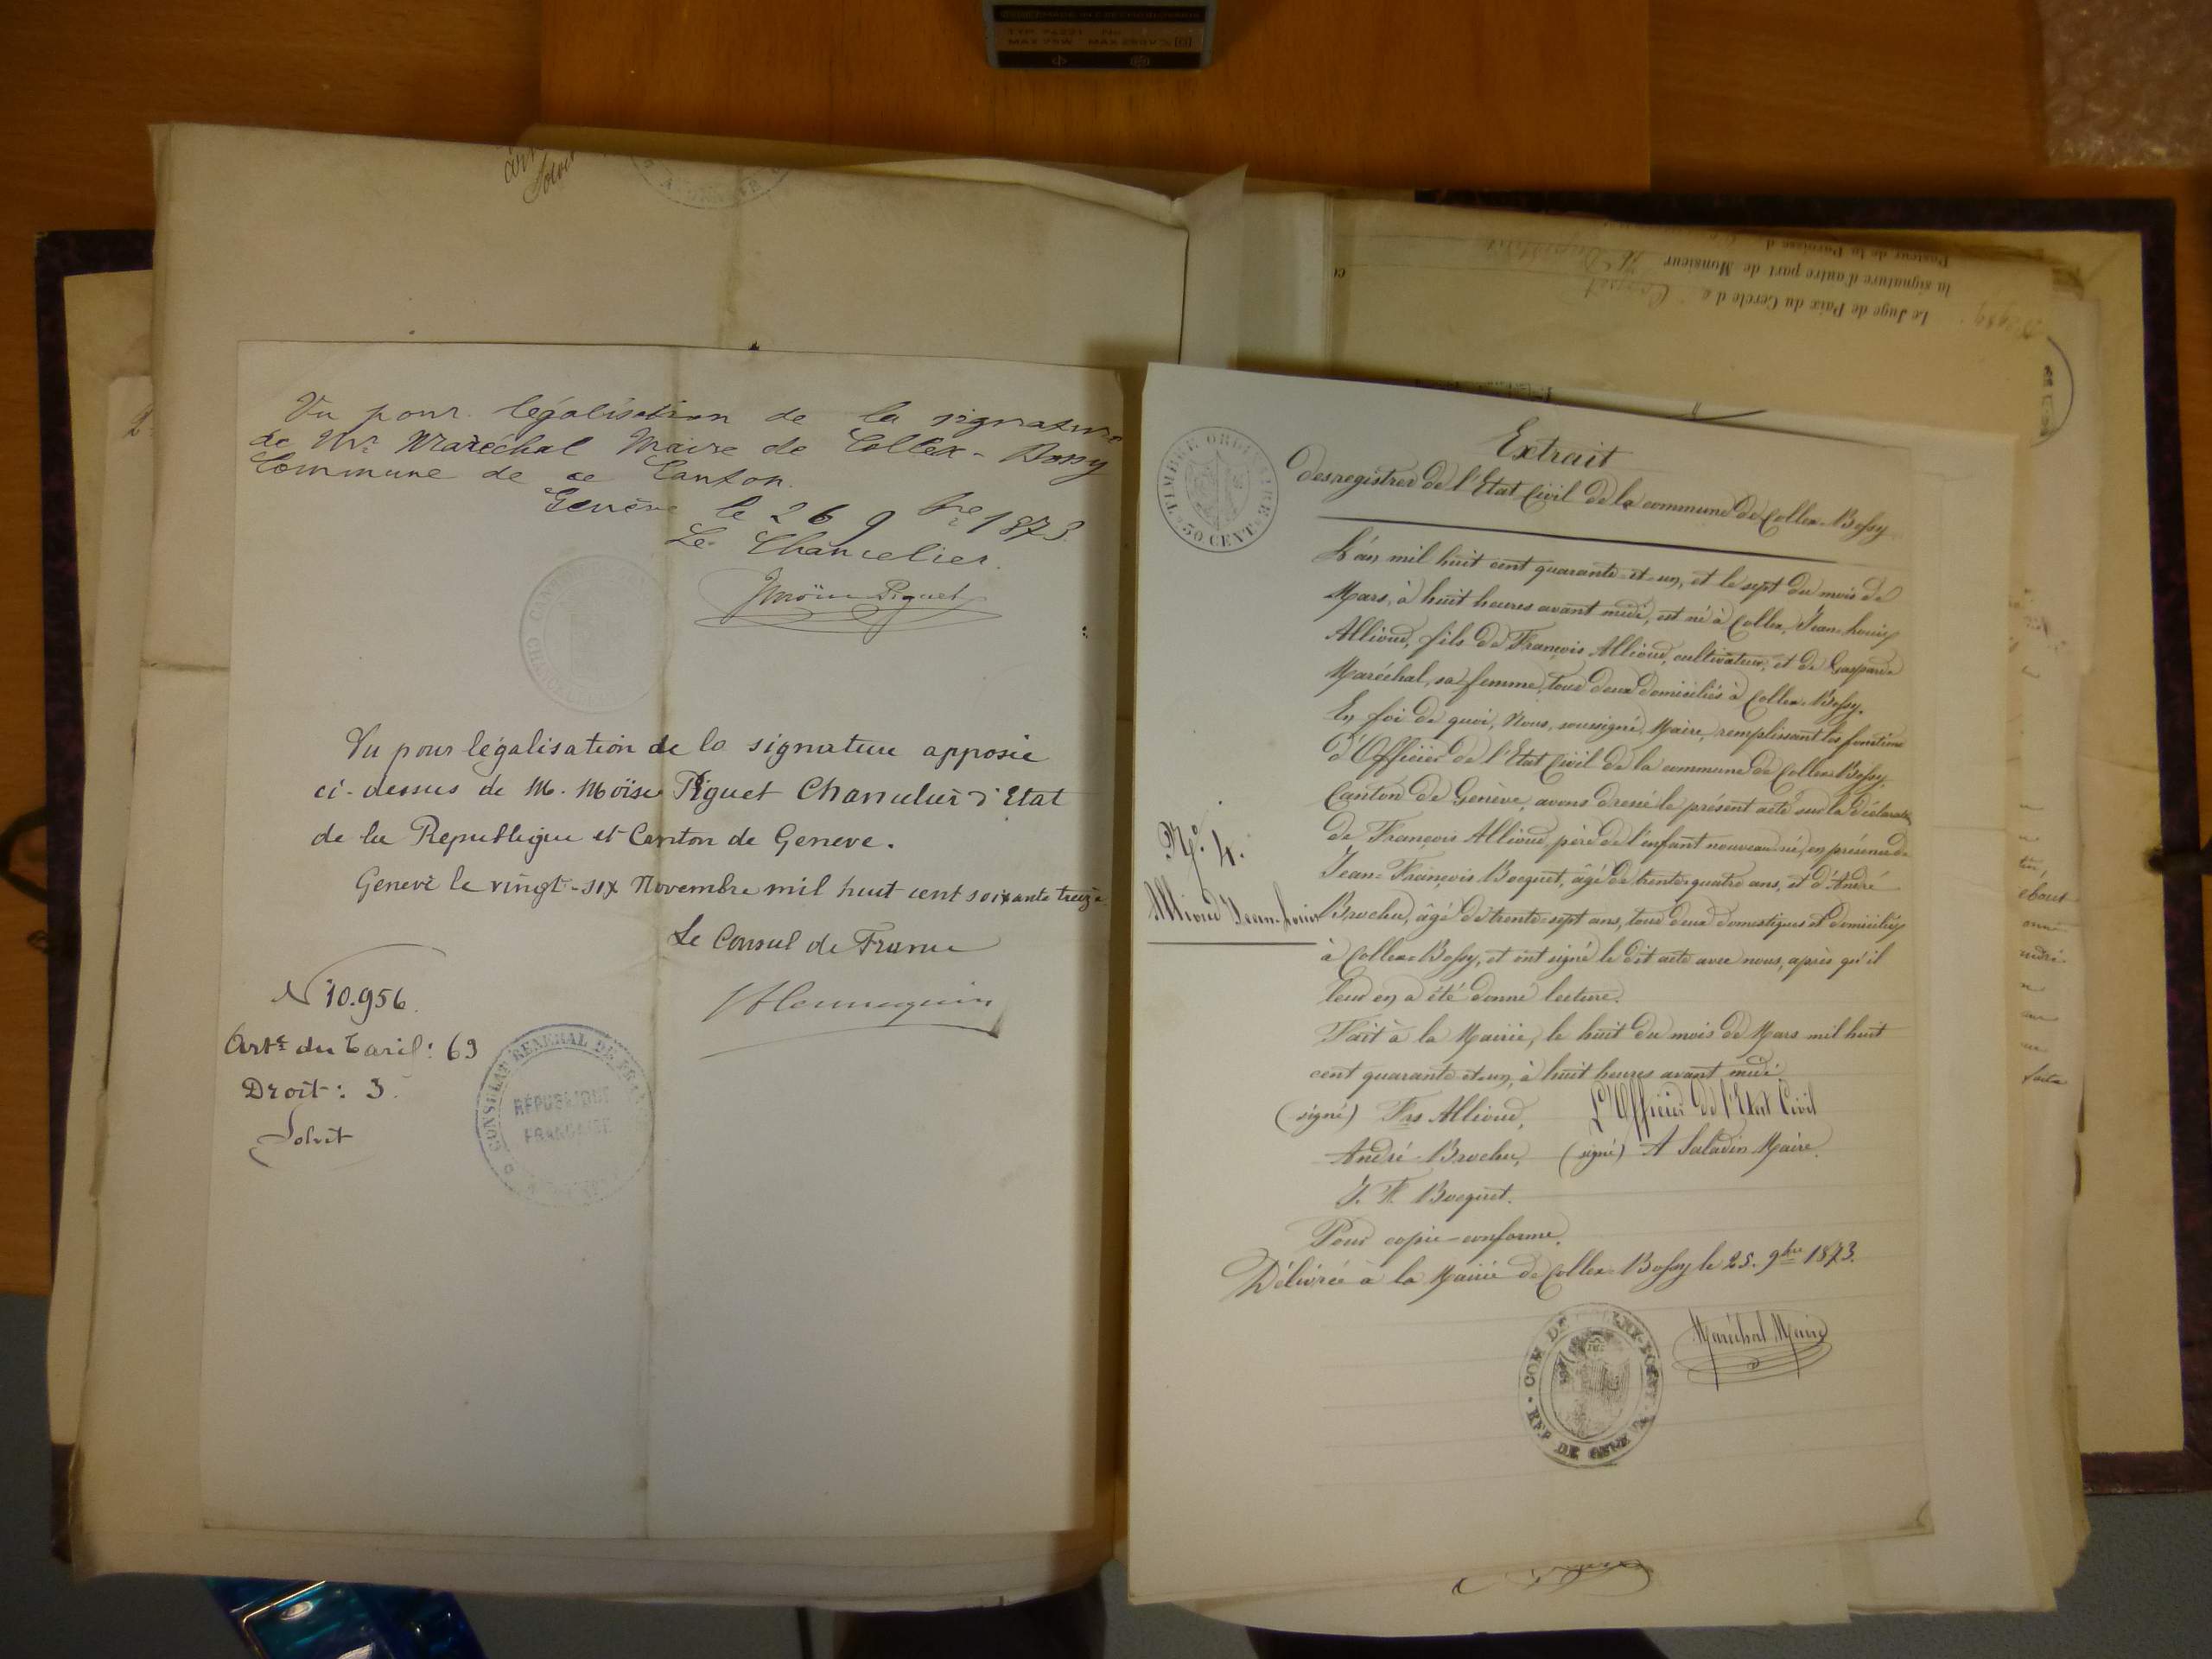 Vu pour légalisation de la signature
de Mr Maréchal Maire de Collex-Bossy
Commune de ce Canton.
Genève le 26 9bre 1873.
Le Chancelier.
Moïse Piguet
Vu pour légalisation de la signature apposée
ci-dessus de M. Moïse Piguet Chancelier d'Etat
de la République et Canton de Geneve.
Genève le vingt-six Novembre mil huit cent soixante treize
Le Consul de France
N 10.956.
Artc du Tarif: 69
Droit: 3.
Solvit
CONSULAT GENERAL DE FRANCE
RÉPUBLIQUE
FRANÇAISE
Le Juge de Paix du Cercle de Coppet
la signature d'autre part de Monsieur
Pasteur de la Paroisse d
TIMBRE ORDINAIRE
50 CENT
Extrait
des registres de l'Etat Civil de la commune de Collex-Bossy
L'an mil huit cent quarante-et-un, et le sept du mois de
Mars, à huit heures avant midi, est né à Collex, Jean-Louis
Allioud, fils de François Allioud, cultivateur, et de Gasparde
Maréchal, sa femme, tous deux domiciliés à Collex-Bossy.
En foi de quoi, Nous, soussigné, Maire, remplissant les fonctions
d'Officier de l'Etat Civil de la commune de Collex-Bossy
Canton de Genève, avons dressé le présent acte sur la déclaration
de François Allioud, père de l'enfant nouveau né, en présence de
Jean-François Bocquet, âgé de trente-quatre ans, et d'André
Brochu, âgé de trente-sept ans, tous deux domestiques et domiciliés
à Collex-Bossy, et ont signé le dit acte avec nous, après qu'il
leur en a été donné lecture.
Fait à la Mairie, le huit du mois de Mars mil huit
cent quarante-et-un, à huit heures avant midi
No. 4.
Allioud Jean-Louis
(signé) Frs Allioud,
L'Officier de l'Etat Civil
André Brochu,
(signé) A Saladin Maire.
J. F. Bocquet.
Pour copie-conforme.
Délivrée à la Mairie de Collex-Bossy le 25. 9bre 1873.
Maréchal Maire
COM. DE COLLEX-BOSSY
REP DE GENEVE